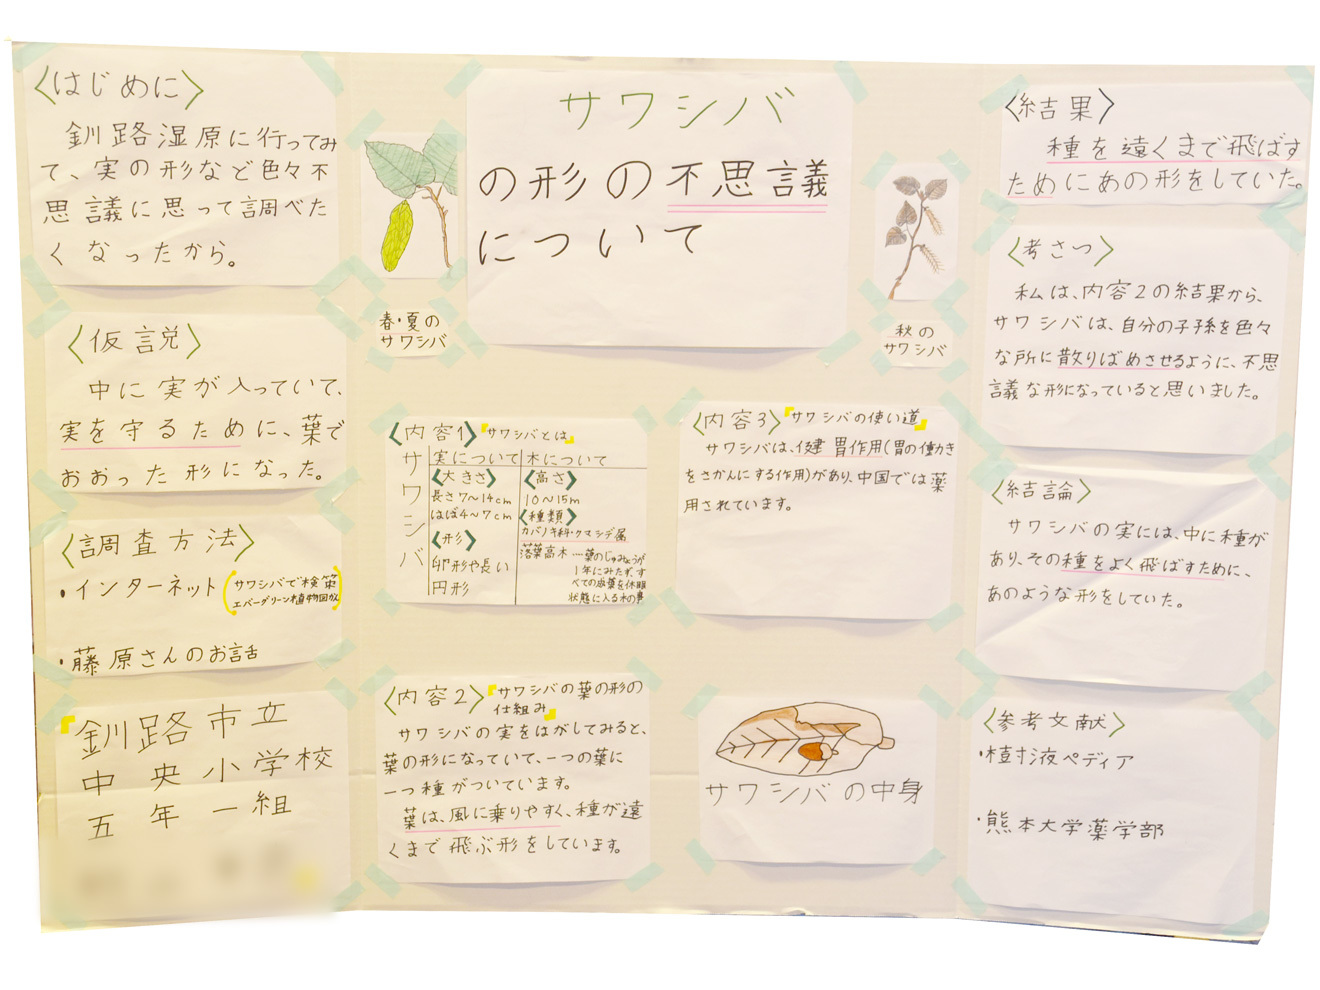 〈はじめに〉
釧路湿原に行ってみ
て、実の形など色々不
思議に思って調べた
くなったから。
〈仮説〉
中に実が入っていて、
実を守るために、葉で
おおった形になった。
〈調査方法〉
・インターネット(サワシバで検索
エバーグリーン植物図鑑)
・藤原さんのお話
『釧路市立
中央小学校
五年一組
サワシバ
の形の不思議
について
春・夏の
サワシバ
秋の
サワシバ
〈内容1〉『サワシバとは』
サワシバ
実について
〈大きさ〉
長さ7〜14cm
はば4〜7cm
〈形〉
卵形や長い
円形
木について
〈高さ〉
10〜15m
〈種類〉
カバノキ科・クマシデ属
落葉高木…葉のじゅみょうが
1年にみたず、す
べての成葉を休眠
状態に入る木の事
〈内容2〉『サワシバの葉の形の
仕組み』
サワシバの実をはがしてみると、
葉の形になっていて、一つの葉に
一つ種がついています。
葉は、風に乗りやすく、種が遠
くまで飛ぶ形をしています。
〈内容3〉『サワシバの使い道』
サワシバは、健胃作用(胃の働き
をさかんにする作用)があり、中国では薬
用されています。
サワシバの中身
〈結果〉
種を遠くまで飛ばす
ためにあの形をしていた。
〈考さつ〉
私は、内容2の結果から、
サワシバは、自分の子孫を色々
な所に散りばめさせるように、不思
議な形になっていると思いました。
〈結論〉
サワシバの実には、中に種が
あり、その種をよく飛ばすために、
あのような形をしていた。
〈参考文献〉
・樹液ペディア
・熊本大学薬学部